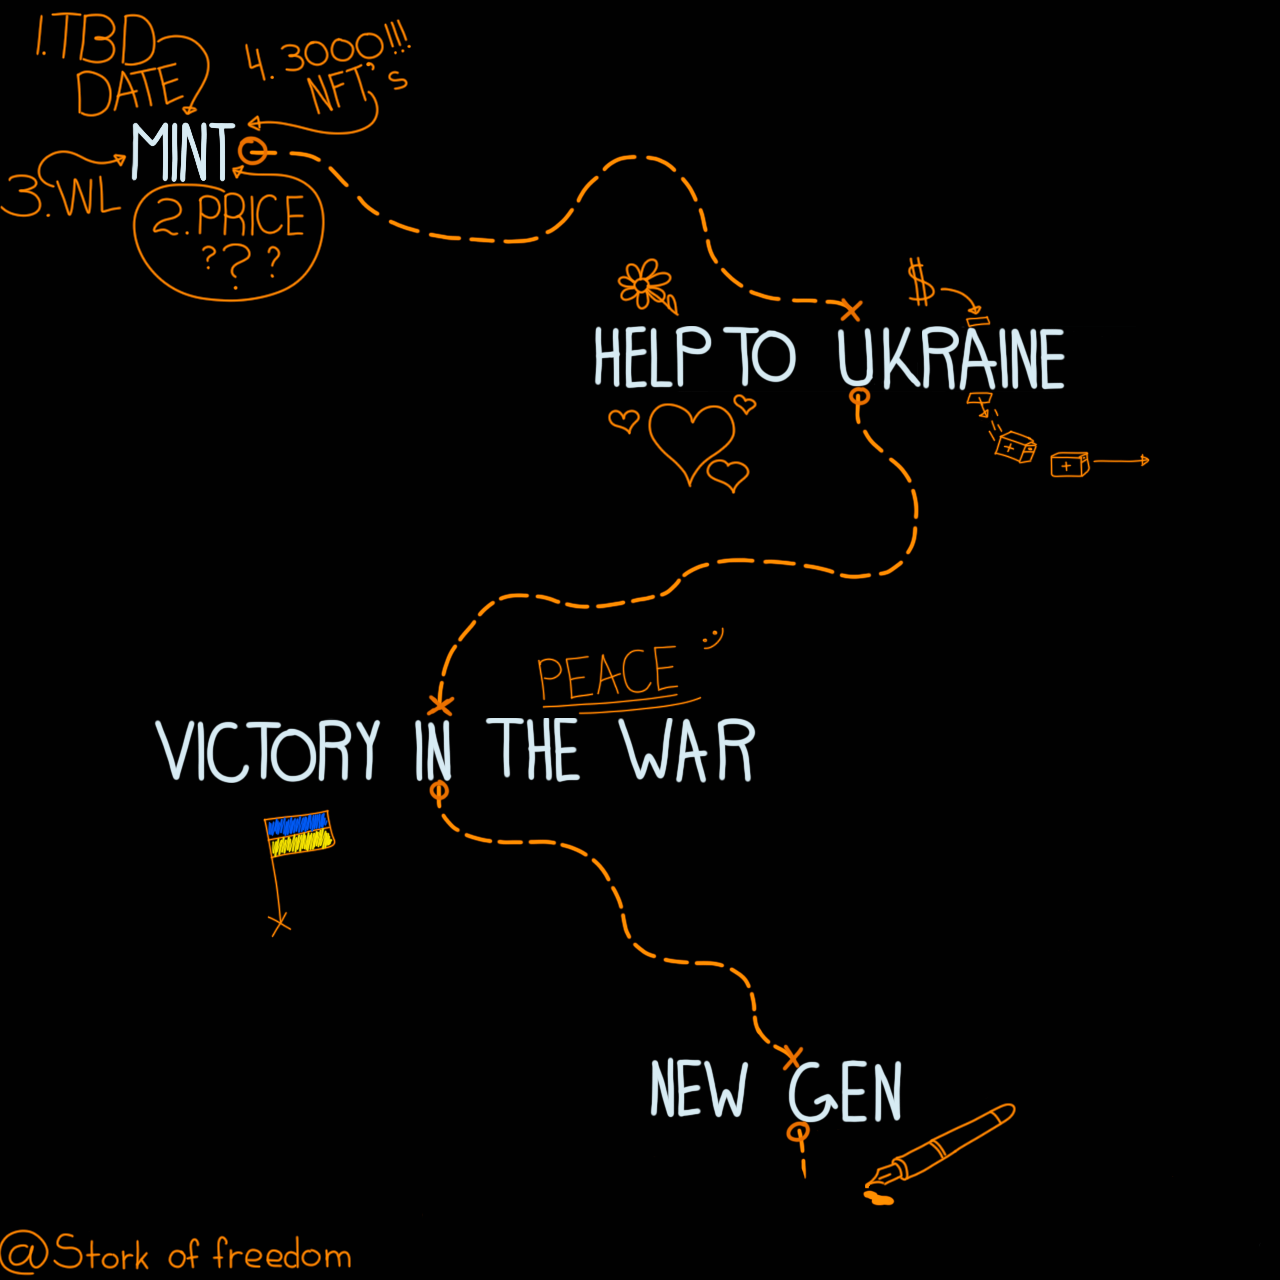 1.TBD
DATE
4.3000!!!
NFT's
MINT
3.WL
2.PRICE
???
$
HELP TO UKRAINE
PEACE :)
VICTORY IN THE WAR
NEW GEN
@Stork of freedom